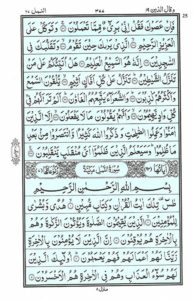 وقال الذين ١٩ ٣٧٧ النمل ٢٧
فَإِنْ عَصَوْكَ فَقُلْ إِنِّي بَرِيءٌ مِّمَّا تَعْمَلُونَ وَتَوَكَّلْ عَلَى
الْعَزِيزِ الرَّحِيمِ الَّذِي يَرٰىكَ حِينَ تَقُومُ وَتَقَلُّبَكَ فِي
السّٰجِدِينَ إِنَّهُ هُوَ السَّمِيعُ الْعَلِيمُ هَلْ أُنَبِّئُكُمْ عَلٰى مَنْ
تَنَزَّلُ الشَّيٰطِينُ تَنَزَّلُ عَلٰى كُلِّ أَفَّاكٍ أَثِيمٍ يُلْقُونَ السَّمْعَ
وَأَكْثَرُهُمْ كٰذِبُونَ وَالشُّعَرَاءُ يَتَّبِعُهُمُ الْغَاوٗنَ أَلَمْ تَرَ أَنَّهُمْ
فِي كُلِّ وَادٍ يَهِيمُونَ وَأَنَّهُمْ يَقُولُونَ مَا لَا يَفْعَلُونَ إِلَّا الَّذِينَ
اٰمَنُوا وَعَمِلُوا الصّٰلِحٰتِ وَذَكَرُوا اللّٰهَ كَثِيرًا وَانْتَصَرُوا مِنْ بَعْدِ
مَا ظُلِمُوا وَسَيَعْلَمُ الَّذِينَ ظَلَمُوا أَيَّ مُنْقَلَبٍ يَنْقَلِبُونَ
سورة النمل مكية
بِسْمِ اللّٰهِ الرَّحْمٰنِ الرَّحِيمِ
طٰسٓ تِلْكَ اٰيٰتُ الْقُرْاٰنِ وَكِتَابٍ مُّبِينٍ هُدًى وَّبُشْرٰى
لِلْمُؤْمِنِينَ الَّذِينَ يُقِيمُونَ الصَّلٰوةَ وَيُؤْتُونَ الزَّكٰوةَ وَهُمْ
بِالْاٰخِرَةِ هُمْ يُوقِنُونَ إِنَّ الَّذِينَ لَا يُؤْمِنُونَ بِالْاٰخِرَةِ
زَيَّنَّا لَهُمْ أَعْمَالَهُمْ فَهُمْ يَعْمَهُونَ أُولٰئِكَ الَّذِينَ
لَهُمْ سُوءُ الْعَذَابِ وَهُمْ فِي الْاٰخِرَةِ هُمُ الْأَخْسَرُونَ